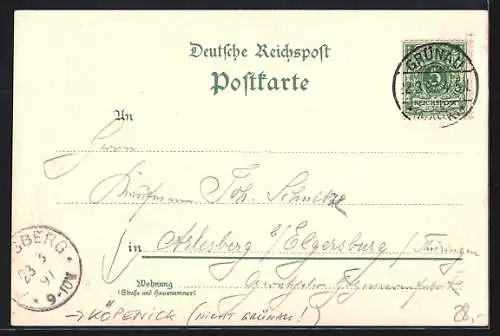 Deutsche Reichspost
Postkarte
GRÜNAU
REICHSPOST
An
Herrn
Kaufmann Joh. Schultze
in Arlesberg b/Elgersburg / Thüringen
Wohnung
(Straße und Hausnummer)
SBERG
23 3
91
9-10V
→ KÖPENICK (NICHT GRÜNAU!)
28,-